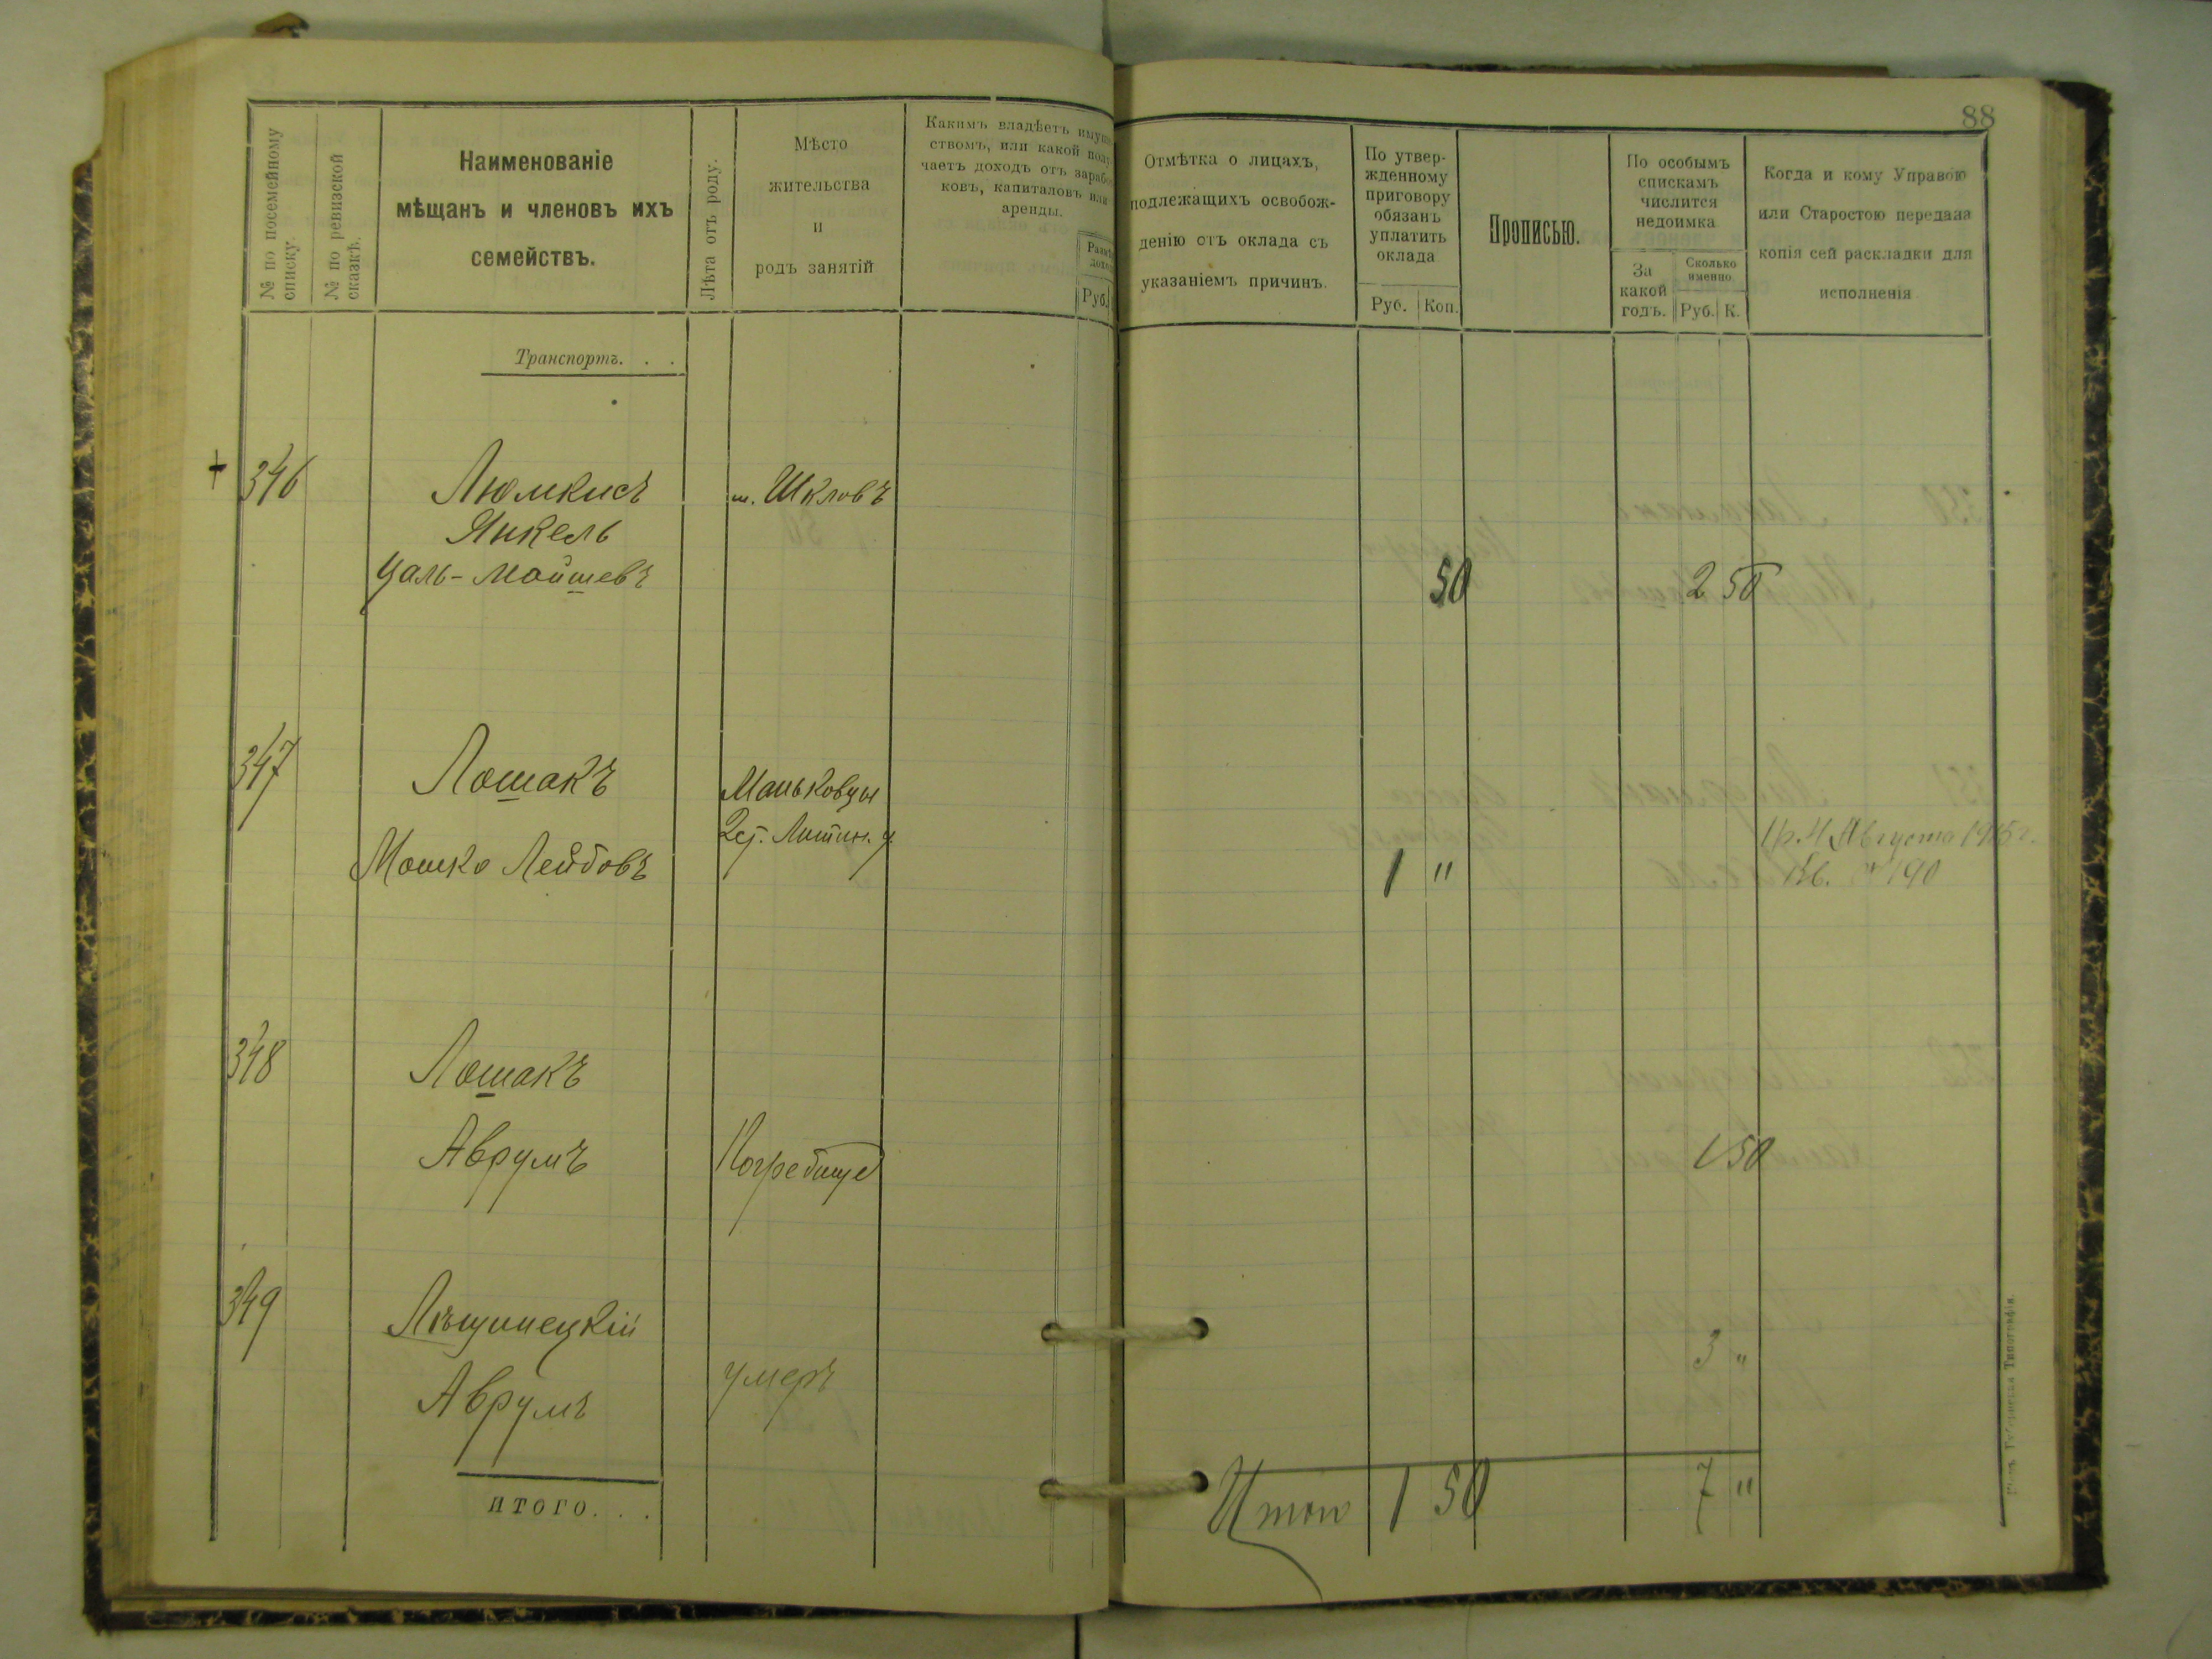 88
№ по посемейному списку.
№ по ревизской сказкѣ.
Наименованіе
мѣщанъ и членовъ ихъ
семействъ.
Лѣта отъ роду.
Мѣсто
жительства
и
родъ занятій
Какимъ владѣетъ имуще-
ствомъ, или какой полу-
чаетъ доходъ отъ заработ-
ковъ, капиталовъ или
аренды.
Руб.
Отмѣтка о лицахъ,
подлежащихъ освобож-
денію отъ оклада съ
указаніемъ причинъ.
По утвер-
жденному
приговору
обязанъ
уплатить
оклада
Руб. Коп.
Прописью.
По особымъ
спискамъ
числится
недоимка
За
какой
годъ.
Сколько
именно.
Руб. К.
Когда и кому Управою
или Старостою передана
копія сей раскладки для
исполненія
Транспортъ. . .
+ 346 Люмкисъ м. Шкловъ
Янкель
Цаль-Мойшевъ 50 2 50
347 Лошакъ Маньковцы
2 ст. Литин. у.
Мошко Лейбовъ 1 "
Пр. 4 Августа 1915 г.
Кв. № 190
348 Лошакъ
Аврумъ Погребище 1 50
349 Лѣщинецкій
Аврумъ умеръ 3 "
ИТОГО. . .
Итого 1 50 7 "